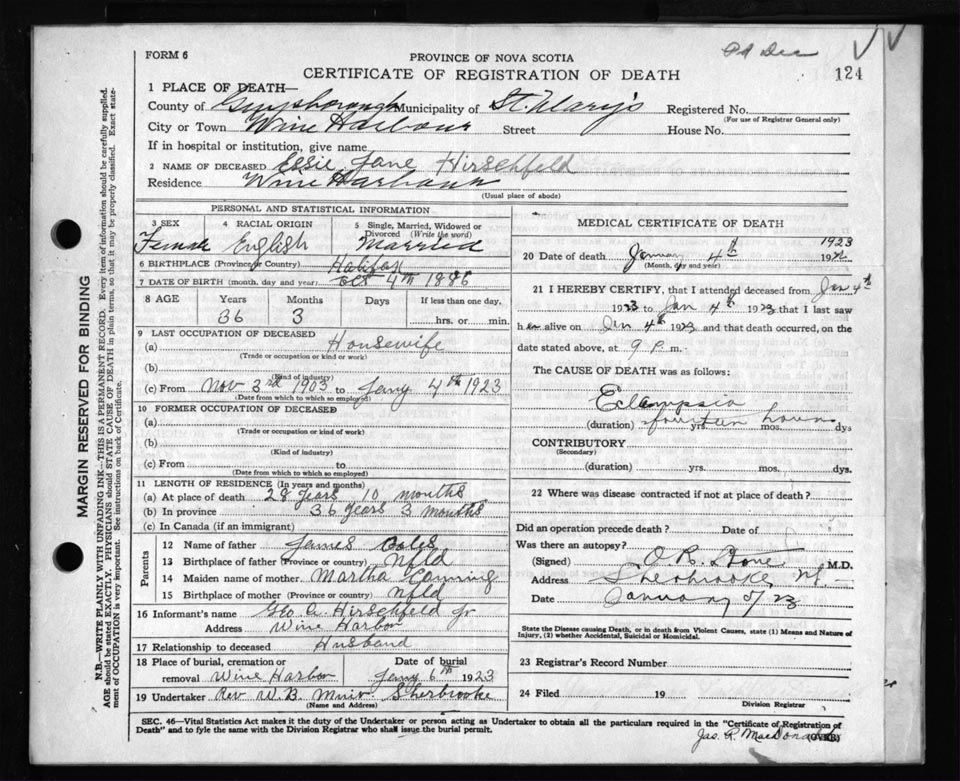 FORM 6
PROVINCE OF NOVA SCOTIA
CERTIFICATE OF REGISTRATION OF DEATH
124
1 PLACE OF DEATH—
County of Guysborough Municipality of St. Mary's Registered No.
(For use of Registrar General only)
City or Town Wine Harbour Street House No.
If in hospital or institution, give name
2 NAME OF DECEASED Essie Jane Hirschfeld
Residence Wine Harbour
(Usual place of abode)
PERSONAL AND STATISTICAL INFORMATION
3 SEX
Female
4 RACIAL ORIGIN
English
5 Single, Married, Widowed or Divorced (Write the word)
Married
6 BIRTHPLACE (Province or Country) Halifax
7 DATE OF BIRTH (month, day, and year) Oct 4th 1886
8 AGE Years Months Days If less than one day,
36 3 hrs. or min.
9 LAST OCCUPATION OF DECEASED
(a) Housewife
(Trade or occupation or kind of work)
(b)
(Kind of industry)
(c) From Nov 3rd 1903 to Jany 4th 1923
(Date from which to which so employed)
10 FORMER OCCUPATION OF DECEASED
(a)
(Trade or occupation or kind of work)
(b)
(Kind of industry)
(c) From to
(Date from which to which so employed)
11 LENGTH OF RESIDENCE (In years and months)
(a) At place of death 28 years 10 months
(b) In province 36 years 3 months
(c) In Canada (if an immigrant)
Parents
12 Name of father James
13 Birthplace of father (Province or country) Nfld
14 Maiden name of mother Martha Canning
15 Birthplace of mother (Province or country) Nfld
16 Informant's name Geo A. Hirschfeld Jr
Address Wine Harbor
17 Relationship to deceased Husband
18 Place of burial, cremation or removal Wine Harbor
Date of burial Jany 6th 1923
19 Undertaker Rev W. B. Muir Sherbrooke
(Name and Address)
MEDICAL CERTIFICATE OF DEATH
20 Date of death January 4th 1923 192
(Month, day and year)
21 I HEREBY CERTIFY, that I attended deceased from Jan 4th
1923 to Jan 4th 1923 that I last saw
h er alive on Jan 4th 1923 and that death occurred, on the
date stated above, at 9 P.m.
The CAUSE OF DEATH was as follows:
Eclampsia
(duration) fourteen hours yrs. mos. dys
CONTRIBUTORY
(Secondary)
(duration) yrs. mos. dys.
22 Where was disease contracted if not at place of death?
Did an operation precede death? Date of
Was there an autopsy?
(Signed) O. R. Stone M.D.
Address Sherbrooke, N.S.
Date January 5/23
State the Disease causing Death, or in death from Violent Causes, state (1) Means and Nature of
Injury, (2) whether Accidental, Suicidal or Homicidal.
23 Registrar's Record Number
24 Filed 19
Division Registrar
SEC. 46—Vital Statistics Act makes it the duty of the Undertaker or person acting as Undertaker to obtain all the particulars required in the "Certificate of Registration of
Death" and to fyle the same with the Division Registrar who shall issue the burial permit.
(OVER)
Jas. R. MacDonald
MARGIN RESERVED FOR BINDING
N.B.—WRITE PLAINLY WITH UNFADING INK—THIS IS A PERMANENT RECORD. Every item of information should be carefully supplied.
AGE should be stated EXACTLY. PHYSICIANS should STATE CAUSE OF DEATH in plain terms, so that it may be properly classified. Exact state-
ment of OCCUPATION is very important. See instructions on back of Certificate.